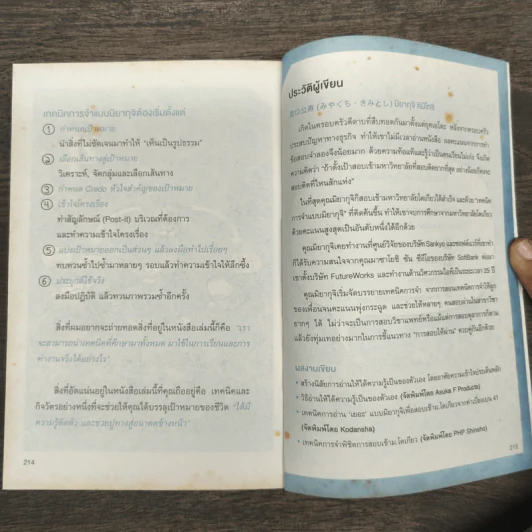 เทคนิคการจำแบบมิยากุจิต้องเริ่มตั้งแต่
① กำหนดเป้าหมาย
นำสิ่งที่ไม่ชัดเจนมาทำให้ "เห็นเป็นรูปธรรม"
② เลือกเส้นทางสู่เป้าหมาย
วิเคราะห์, จัดกลุ่มและเลือกเส้นทาง
③ กำหนด Credo หัวใจสำคัญของเป้าหมาย
④ เข้าใจโครงเรื่อง
ทำสัญลักษณ์ (Post-it) บริเวณที่ต้องการ
และทำความเข้าใจโครงเรื่อง
⑤ แบ่งเป้าหมายออกเป็นส่วนๆ แล้วลงมือทำไปเรื่อยๆ
ทบทวนซ้ำไปซ้ำมาหลายๆ รอบแล้วทำความเข้าใจให้ลึกซึ้ง
⑥ ประยุกต์ใช้จริง
ลงมือปฏิบัติ แล้วทวนภาพรวมซ้ำอีกครั้ง
สิ่งที่ผมอยากจะถ่ายทอดสิ่งที่อยู่ในหนังสือเล่มนี้ก็คือ "เรา
จะสามารถนำเทคนิคที่ศึกษามาทั้งหมด มาใช้ในการเรียนและการ
ทำงานจริงได้อย่างไร"
สิ่งที่อัดแน่นอยู่ในหนังสือเล่มนี้ที่คุณถืออยู่คือ เทคนิคและ
กิจวัตรอย่างหนึ่งที่จะช่วยให้คุณได้บรรลุเป้าหมายของชีวิต "ได้มี
ความรู้ติดตัว และช่วยปูทางสู่อนาคตข้างหน้า"
214
ประวัติผู้เขียน
(みやぐち・きみとし) มิยากุจิ คิมิโทชิ
เกิดในครอบครัวคีตาบที่สืบทอดกันมาตั้งแต่ยุคเอโดะ หลังจากครอบครัว
ประสบปัญหาทางธุรกิจ ทำให้เขาไม่มีเวลาอ่านหนังสือ
ข้อสอบจำลองจึงน้อยมาก ด้วยความท้อแท้และรู้ว่าเป็นคนเรียนไม่เก่ง จึงเกิด
ความคิดว่า "ถ้าตั้งเป้าสอบเข้ามหาวิทยาลัยที่สอบติดยากที่สุด
สอบติดที่ไหนสักแห่ง"
ในที่สุดคุณมิยากุจิก็สอบเข้ามหาวิทยาลัยโตเกียวได้สำเร็จ และด้วย "เทคนิค
การจำแบบมิยากุจิ" ที่คิดค้นขึ้น ทำให้เขาจบการศึกษาจากมหาวิทยาลัยโตเกียว
ด้วยคะแนนสูงสุดเป็นอันดับหนึ่งได้อีกด้วย
คุณมิยากุจิเคยทำงานที่ศูนย์วิจัยของบริษัท Sankyo
ก็ได้รับความสนใจจากคุณมาซาโยชิ ซัน ซีอีโอของบริษัท SoftBank ต่อมา
เขาตั้งบริษัท FutureWorks และทำงานด้านวิศวกรรมไอทีเป็นระยะเวลา 25 ปี
คุณมิยากุจิเริ่มจัดบรรยายเทคนิคการจำ จากการสอนเทคนิคการจำให้ลูก
ของเขาจนคะแนนพุ่งกระฉูด และช่วยให้หลายๆ คนสอบผ่านในสาขาวิชา
ยากๆ ได้ ไม่ว่าจะเป็นการสอบวิชาแพทย์หรือแม้แต่การสอบตุลาการก็ตาม
แล้วยังทุ่มเทอย่างมากในการชี้แนวทาง "การสอบให้ผ่าน" ควบคู่กันอีกด้วย
ผลงานเขียน
• สร้างนิสัยการอ่านให้ได้ความรู้เป็นของตัวเอง
• วิธีอ่านให้ได้ความรู้เป็นของตัวเอง (จัดพิมพ์โดย Asuka F Products)
• เทคนิคการอ่าน "เยอะ" แบบมิยากุจิเพื่อสอบเข้าม.โตเกียวจากค่าเบี่ยงเบน 41
(จัดพิมพ์โดย Kodansha)
• เทคนิคการจำพิชิตการสอบเข้าม.โตเกียว (จัดพิมพ์โดย PHP Shinsho)
215